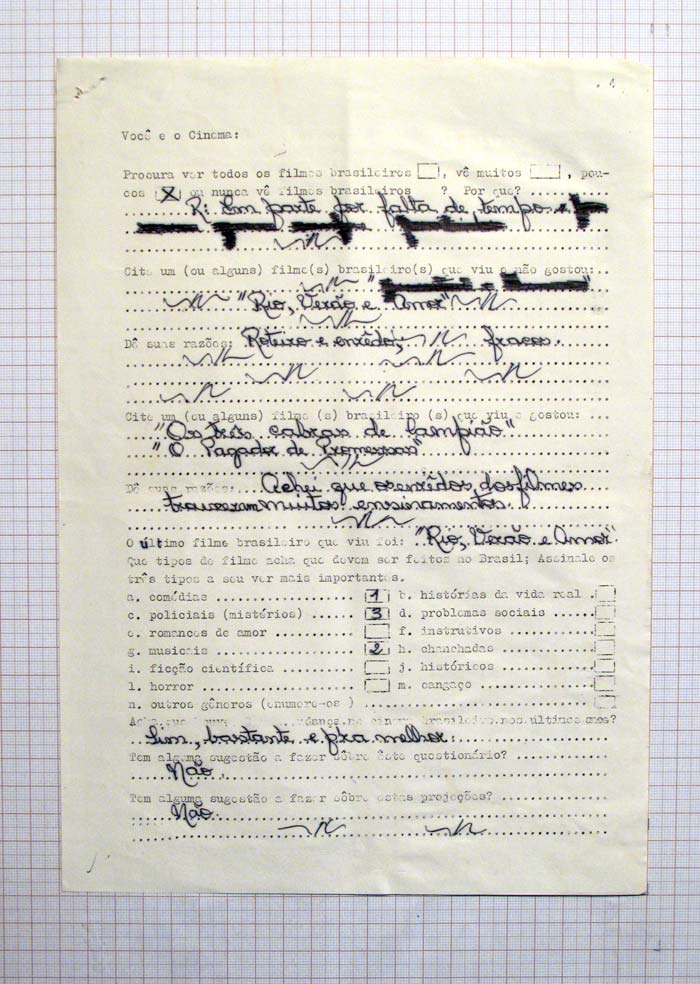 Você e o Cinema:
Procura ver todos os filmes brasileiros , vê muitos , pou-
cos X ou nunca vê filmes brasileiros ? Por que?
R: Em parte por falta de tempo
Cite um (ou alguns) filme(s) brasileiro(s) que viu e não gostou:
"Rio, Verão e Amor"
Dê suas razões: Roteiro e enrêdo, fracos.
Cite um (ou alguns) filme (s) brasileiro (s) que viu e gostou:
"Os três cabras de Lampião"
"O Pagador de Promessas"
Dê suas razões: Achei que os enrêdos dos filmes
trouxeram muitos ensinamentos.
O último filme brasileiro que viu foi: "Rio, Verão e Amor".
Que tipos de filme acha que devem ser feitos no Brasil; Assinale os
três tipos a seu ver mais importantes.
a. comédias 1 b. histórias da vida real
c. policiais (mistérios) 3 d. problemas sociais
e. romances de amor f. instrutivos
g. musicais 2 h. chanchadas
i. ficção científica j. históricos
l. horror m. cangaço
n. outros gêneros (enumere-os )
Acha que no cinema brasileiro nos últimos
Sim, bastante e pra melhor.
Tem alguma sugestão a fazer sôbre êste questionário?
Não.
Tem alguma sugestão a fazer sôbre estas projeções?
Não.